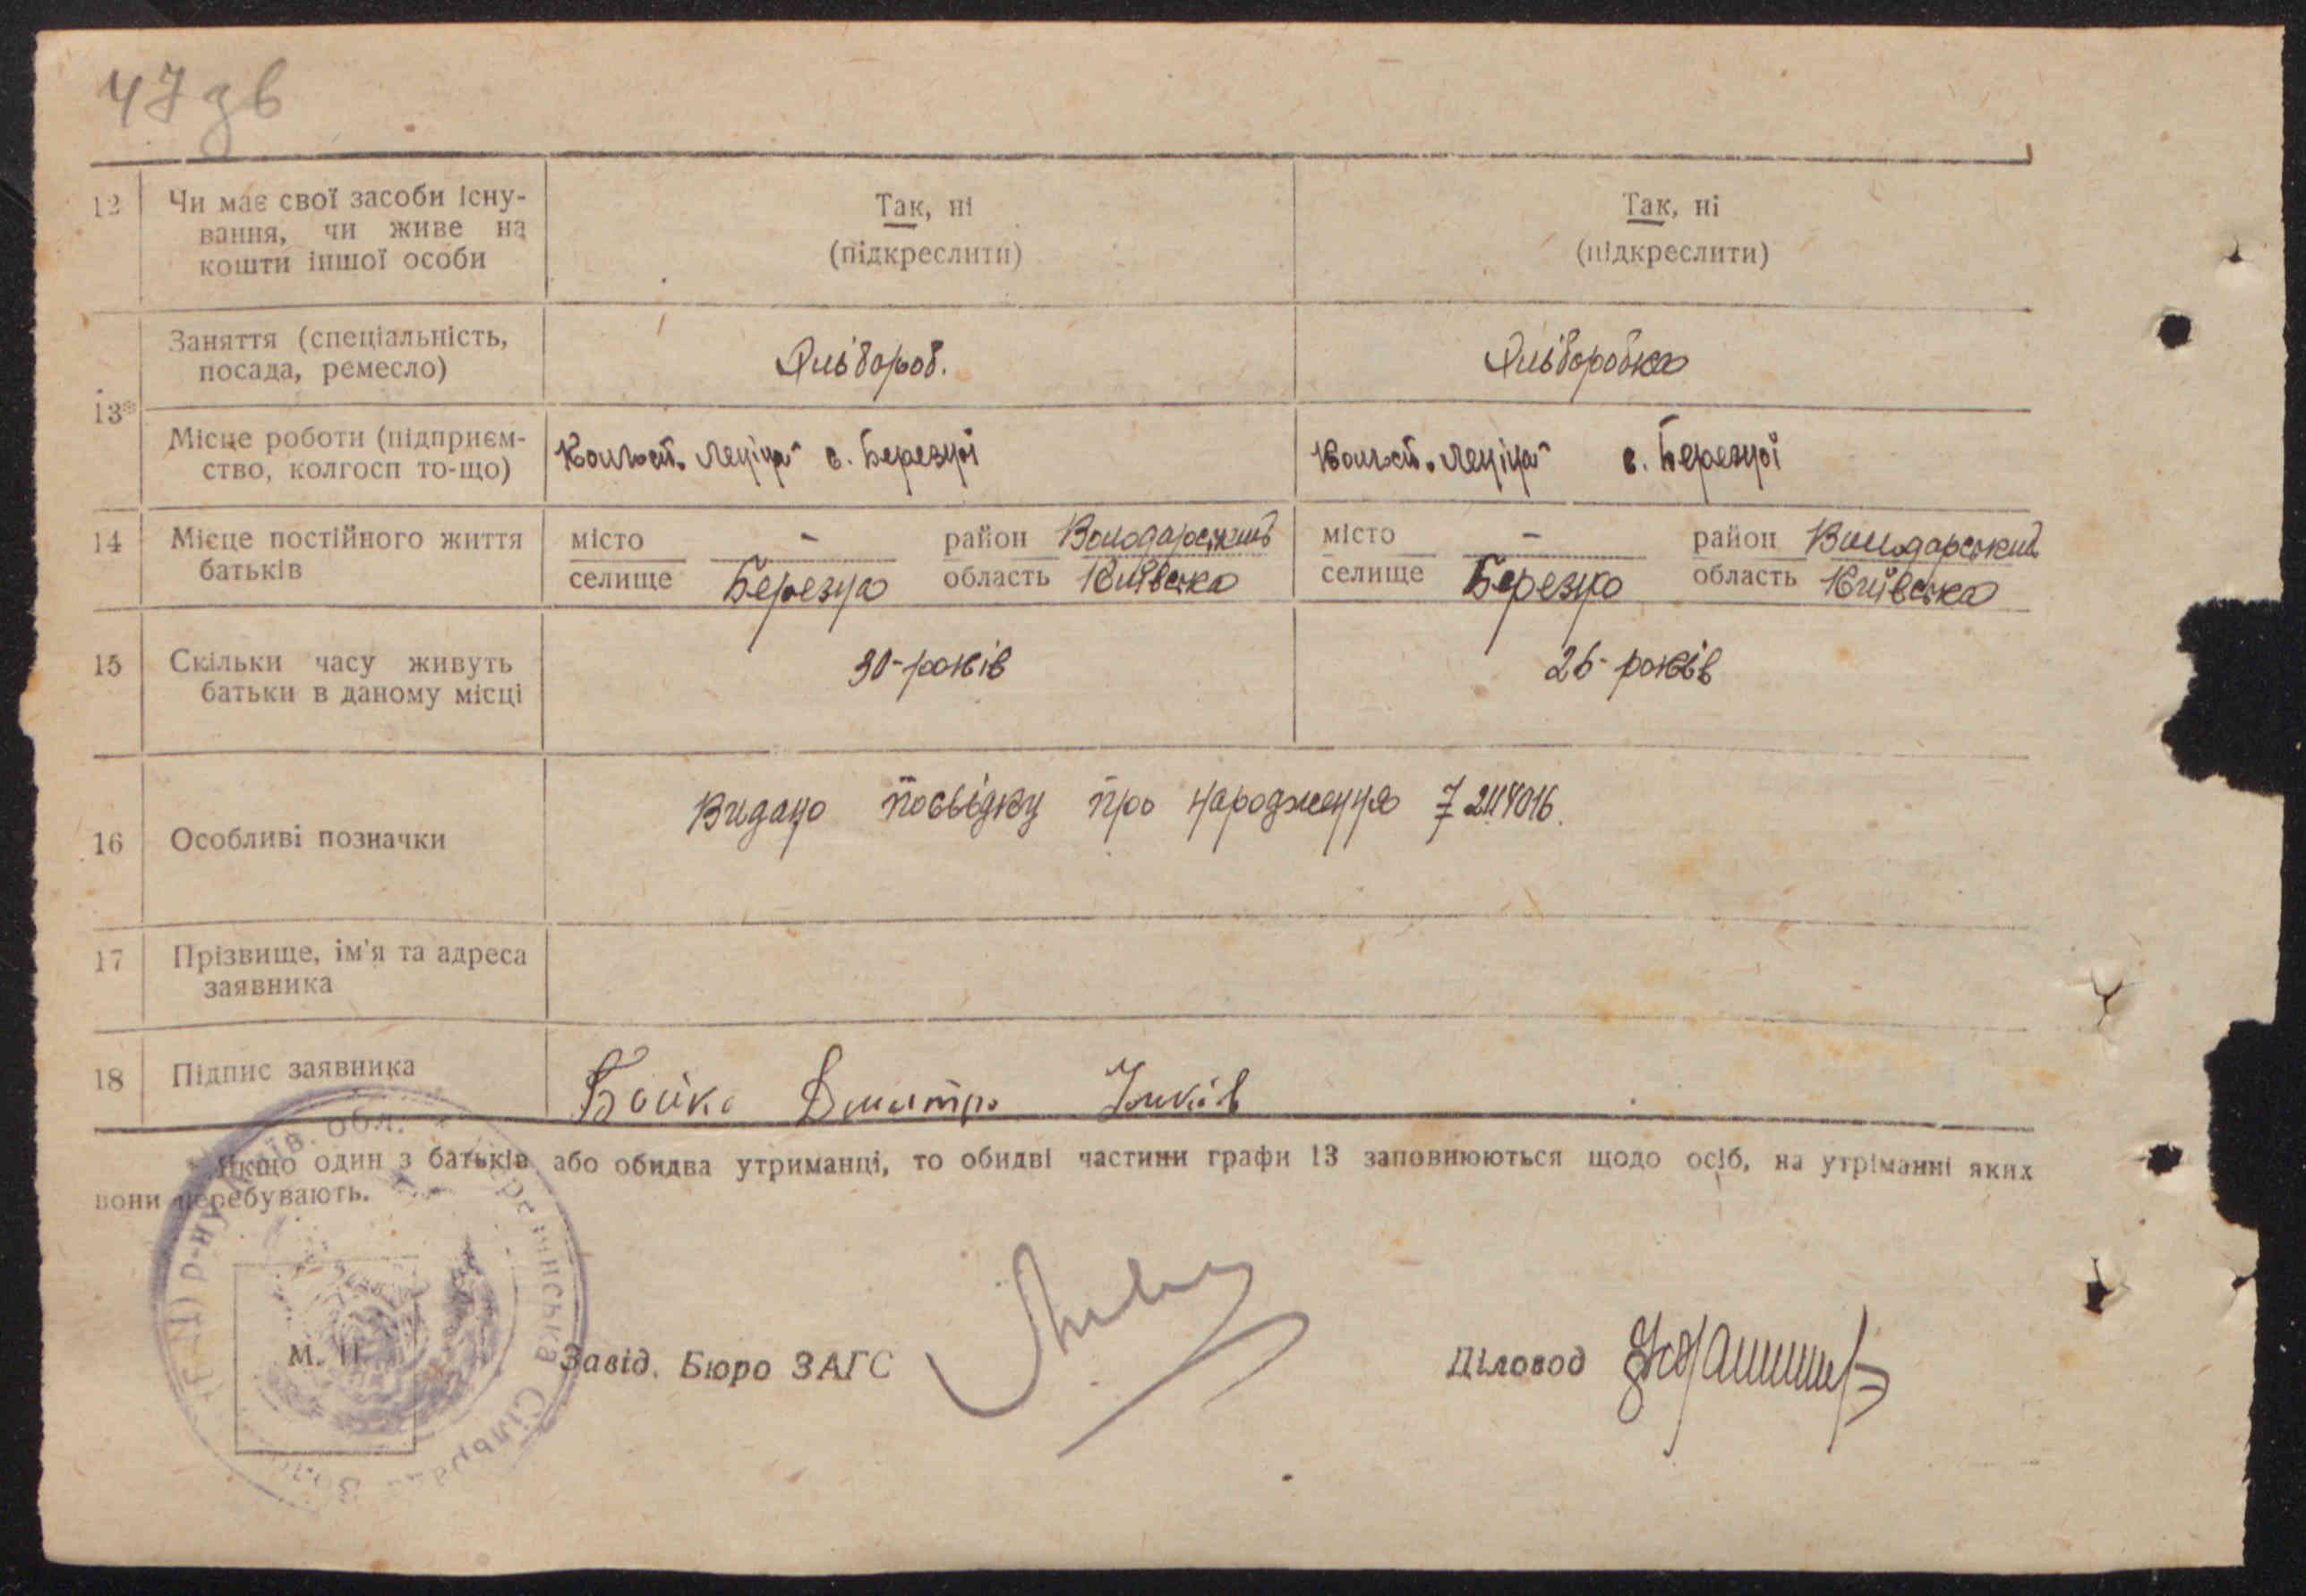 47 зв
12 Чи має свої засоби існу- Так, ні Так, ні
вання, чи живе на (підкреслити) (підкреслити)
кошти іншої особи
Заняття (спеціальність, Хлібороб. Хліборобка
посада, ремесло)
13*
Місце роботи (підприєм- Колгосп. Леніна" с. Березної Колгосп. „Леніна" с. Березної
ство, колгосп то-що)
14 Місце постійного життя місто - район Володарський місто - район Володарський
батьків селище Березна область Київська селище Березно область Київська
15 Скільки часу живуть 30-років 26-років
батьки в даному місці
16 Особливі позначки Видано посвідку про народження 7 2114016.
17 Прізвище, ім'я та адреса
заявника
18 Підпис заявника Бойко Дмитро
Якщо один з батьків або обидва утриманці, то обидві частини графи 13 заповнюються щодо осіб, на утріманні яких
вони перебувають.
М. П. Завід. Бюро ЗАГС Діловод
р-ну Київ. обл. Березнянська Сільрада